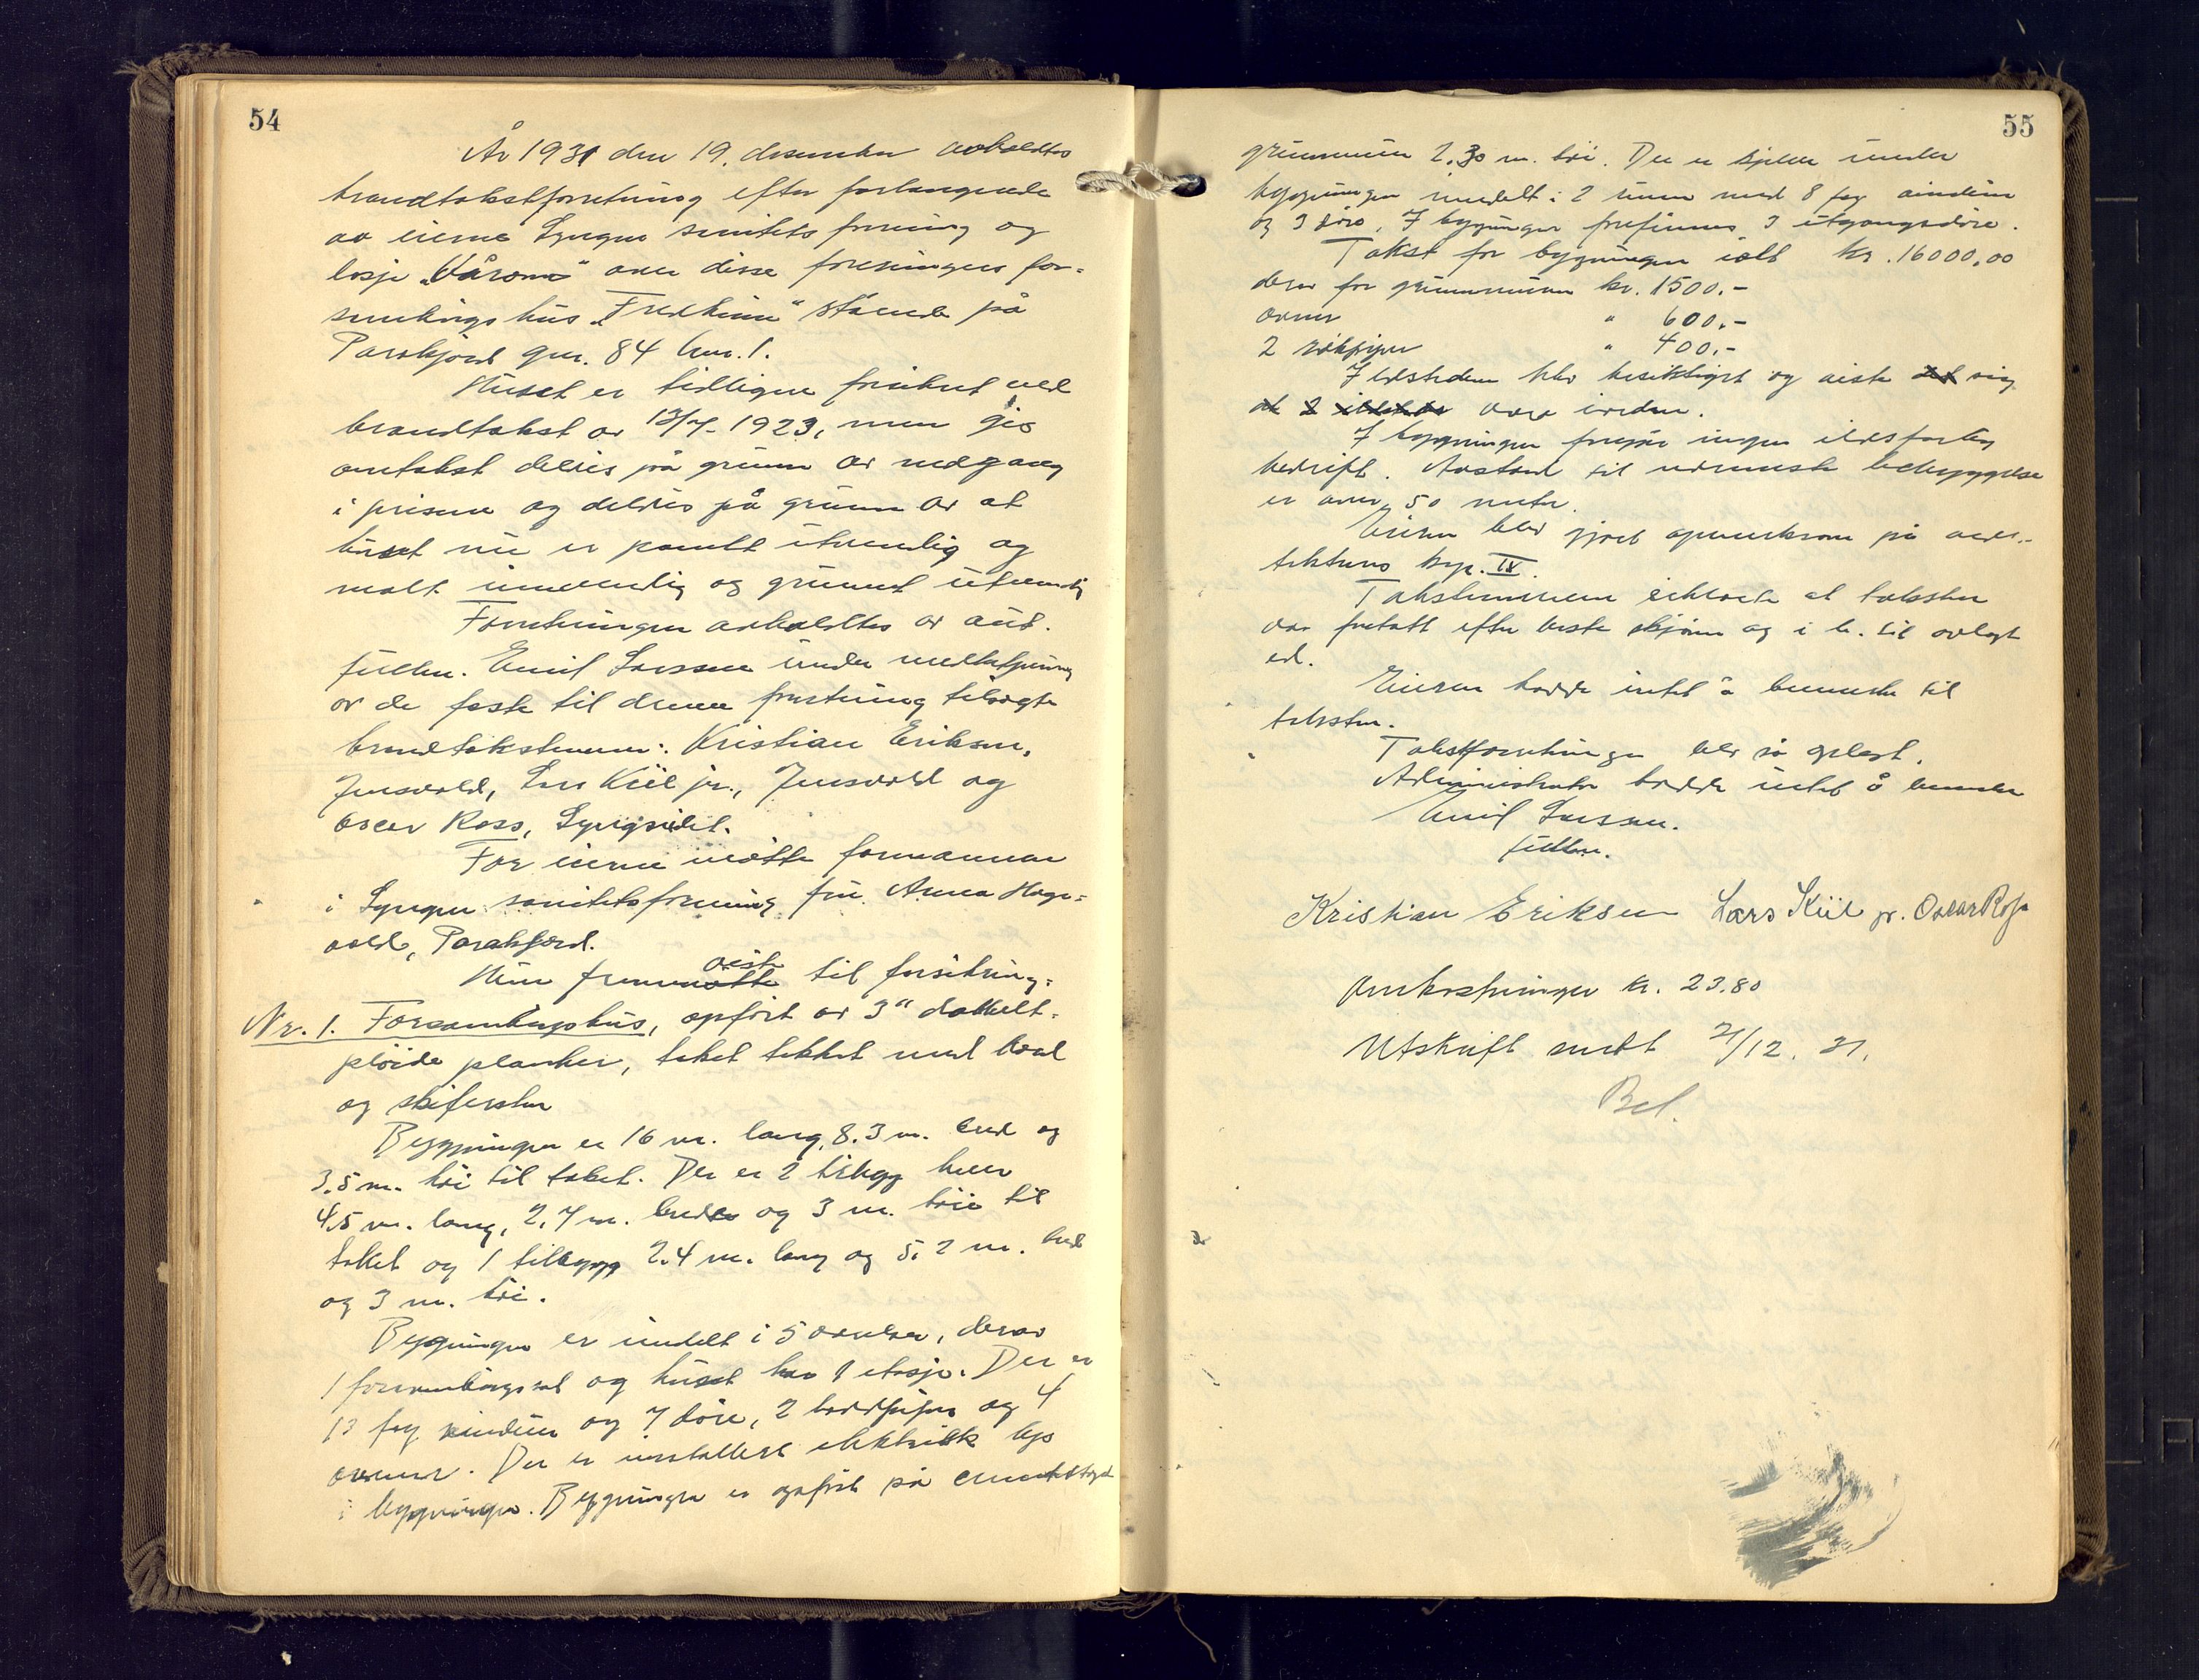 54
År 1931 den 19. desember avholdtes
brandtakstforretning efter forlangende
av eierne Lyngen sanitetsforening og
losje „Vårsom" over disse foreningers for-
samlingshus „Fredheim" stående på
Parakjord gnr. 84 bnr. 1.
Huset er tidligere forsikret ved
brandtakst av 13/7-1923, men gis
omtakst delvis på grunn av nedgang
i prisene og delvis på grunn av at
huset nu er panelt utvendig og
malt innvendig og grunnet utvendig
Forretningen avholdtes av aut.
fullm. Emil Larssen under medhjelpning
av de faste til denne forretning tilsagte
brandtakstmenn: Kristian Eriksen,
Jensvold, Lars Kiil jr., Jensvold og
Oscar Ross, Lyngseidet.
For eierne møtte formannen
i Lyngen sanitetsforening fru Anna Hage-
vold, Parakjord.
Hun fremmøtte viste til forsikring:
Nr. 1. Forsamlingshus, opført av 3" dobbelt-
pløide planker, taket tekket med bord
og skifersten
Bygningen er 16 m. lang, 8.3 m. bred og
3.5 m. høi til taket. Der er 2 tilbygg hver
4,5 m. lang, 2,7 m. brede og 3 m. høie til
taket og 1 tilbygg 2.4 m. lang og 5,2 m. bred
og 3 m. høi.
Bygningen er inndelt i 5 værelser, derav
1 forsamlingssal og huset har 1 etasje. Der er
13 fag vinduer og 7 døre, 2 piper og 4
ovner. Der er installert elektrisk lys
i bygningen. Bygningen er opført på cementstøpt
55
grunnmur 2,30 m. høi. Der er kjeller under
bygningen inndelt i 2 rum med 8 fag vinduer
og 3 døre. I bygningen forefinnes 3 utgangsdøre.
Takst for bygningen ialt kr. 16000,00
derav for grunnmuren kr. 1500.-
ovner " 600.-
2 rökpiper " 400.-
Ildstedene blev besiktiget og viste sig
være iorden.
I bygningen foregår ingen ildsfarlig
bedrift. Avstand til nærmeste bebyggelse
er over 50 meter.
Eieren blev gjort opmerksom på ved-
tektens kap. IV.
Takstmennene erklærte at taksten
var foretatt efter beste skjønn og i h. til avlagt
ed.
Eieren hadde intet å bemerke til
taksten.
Takstforretningen blev så oplest.
Administrator hadde intet å bemerke
Emil Larssen.
fullm.
Kristian Eriksen Lars Kiil jr. Oscar Ross
Omkostninger kr. 23.80
Utskrift sendt 21/12. 31.
Bet.